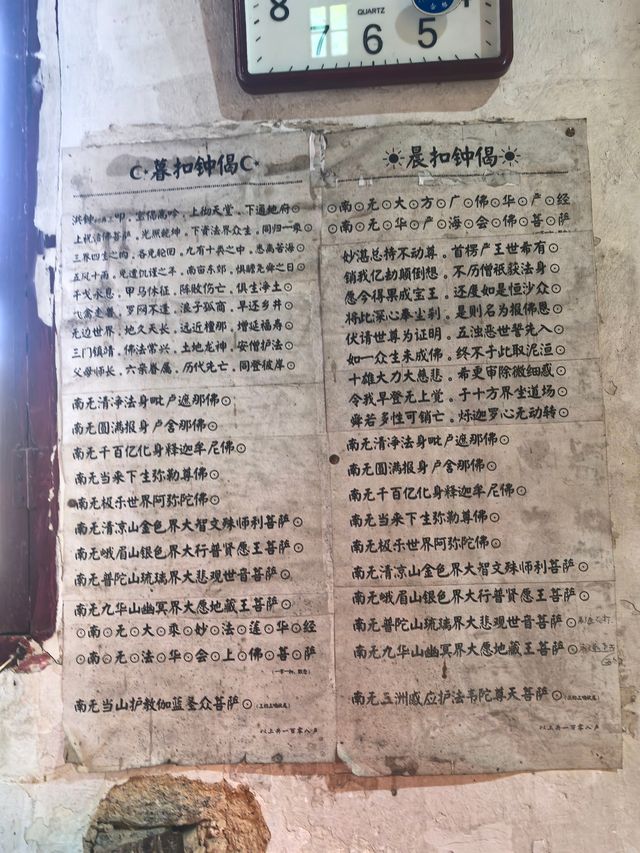 QUARTZ
8 7 6 5 4
暮扣钟偈
洪钟 叩，宝偈高吟，上彻天堂，下通地府⊙
上祝诸佛菩萨，光照乾坤，下资法界众生，同归一乘
三界四生之内，各免轮回，九有十类之中，悉离苦海
五风十雨，免遭饥馑之年，南亩东郊，俱瞻尧舜之日
干戈永息，甲马休征，阵败伤亡，俱生净土⊙
飞禽走兽，罗网不逢，浪子孤商，早还乡井⊙
无边世界，地久天长，远近檀那，增延福寿⊙
三门镇靖，佛法常兴，土地龙神，安僧护法⊙
父母师长，六亲眷属，历代先亡，同登彼岸⊙
南无清净法身毗卢遮那佛⊙
南无圆满报身卢舍那佛⊙
南无千百亿化身释迦牟尼佛⊙
南无当来下生弥勒尊佛⊙
南无极乐世界阿弥陀佛⊙
南无清凉山金色界大智文殊师利菩萨⊙
南无峨眉山银色界大行普贤愿王菩萨⊙
南无普陀山琉璃界大悲观世音菩萨⊙
南无九华山幽冥界大愿地藏王菩萨⊙
⊙南⊙无⊙大⊙乘⊙妙⊙法⊙莲⊙华⊙经
⊙南⊙无⊙法⊙华⊙会⊙上⊙佛⊙菩⊙萨
南无当山护教伽蓝圣众菩萨⊙
以上共一百零八声
晨扣钟偈
⊙南⊙无⊙大⊙方⊙广⊙佛⊙华⊙严⊙经
⊙南⊙无⊙华⊙严⊙海⊙会⊙佛⊙菩⊙萨
妙湛总持不动尊。首楞严王世希有⊙
销我亿劫颠倒想。不历僧祇获法身⊙
愿今得果成宝王。还度如是恒沙众⊙
将此深心奉尘刹。是则名为报佛恩⊙
伏请世尊为证明。五浊恶世誓先入⊙
如一众生未成佛。终不于此取泥洹⊙
大雄大力大慈悲。希更审除微细惑⊙
令我早登无上觉。于十方界坐道场⊙
舜若多性可销亡。烁迦罗心无动转⊙
南无清净法身毗卢遮那佛⊙
南无圆满报身卢舍那佛⊙
南无千百亿化身释迦牟尼佛⊙
南无当来下生弥勒尊佛⊙
南无极乐世界阿弥陀佛⊙
南无清凉山金色界大智文殊师利菩萨⊙
南无峨眉山银色界大行普贤愿王菩萨⊙
南无普陀山琉璃界大悲观世音菩萨⊙
南无九华山幽冥界大愿地藏王菩萨⊙
南无三洲感应护法韦陀尊天菩萨⊙
以上共一百零八声